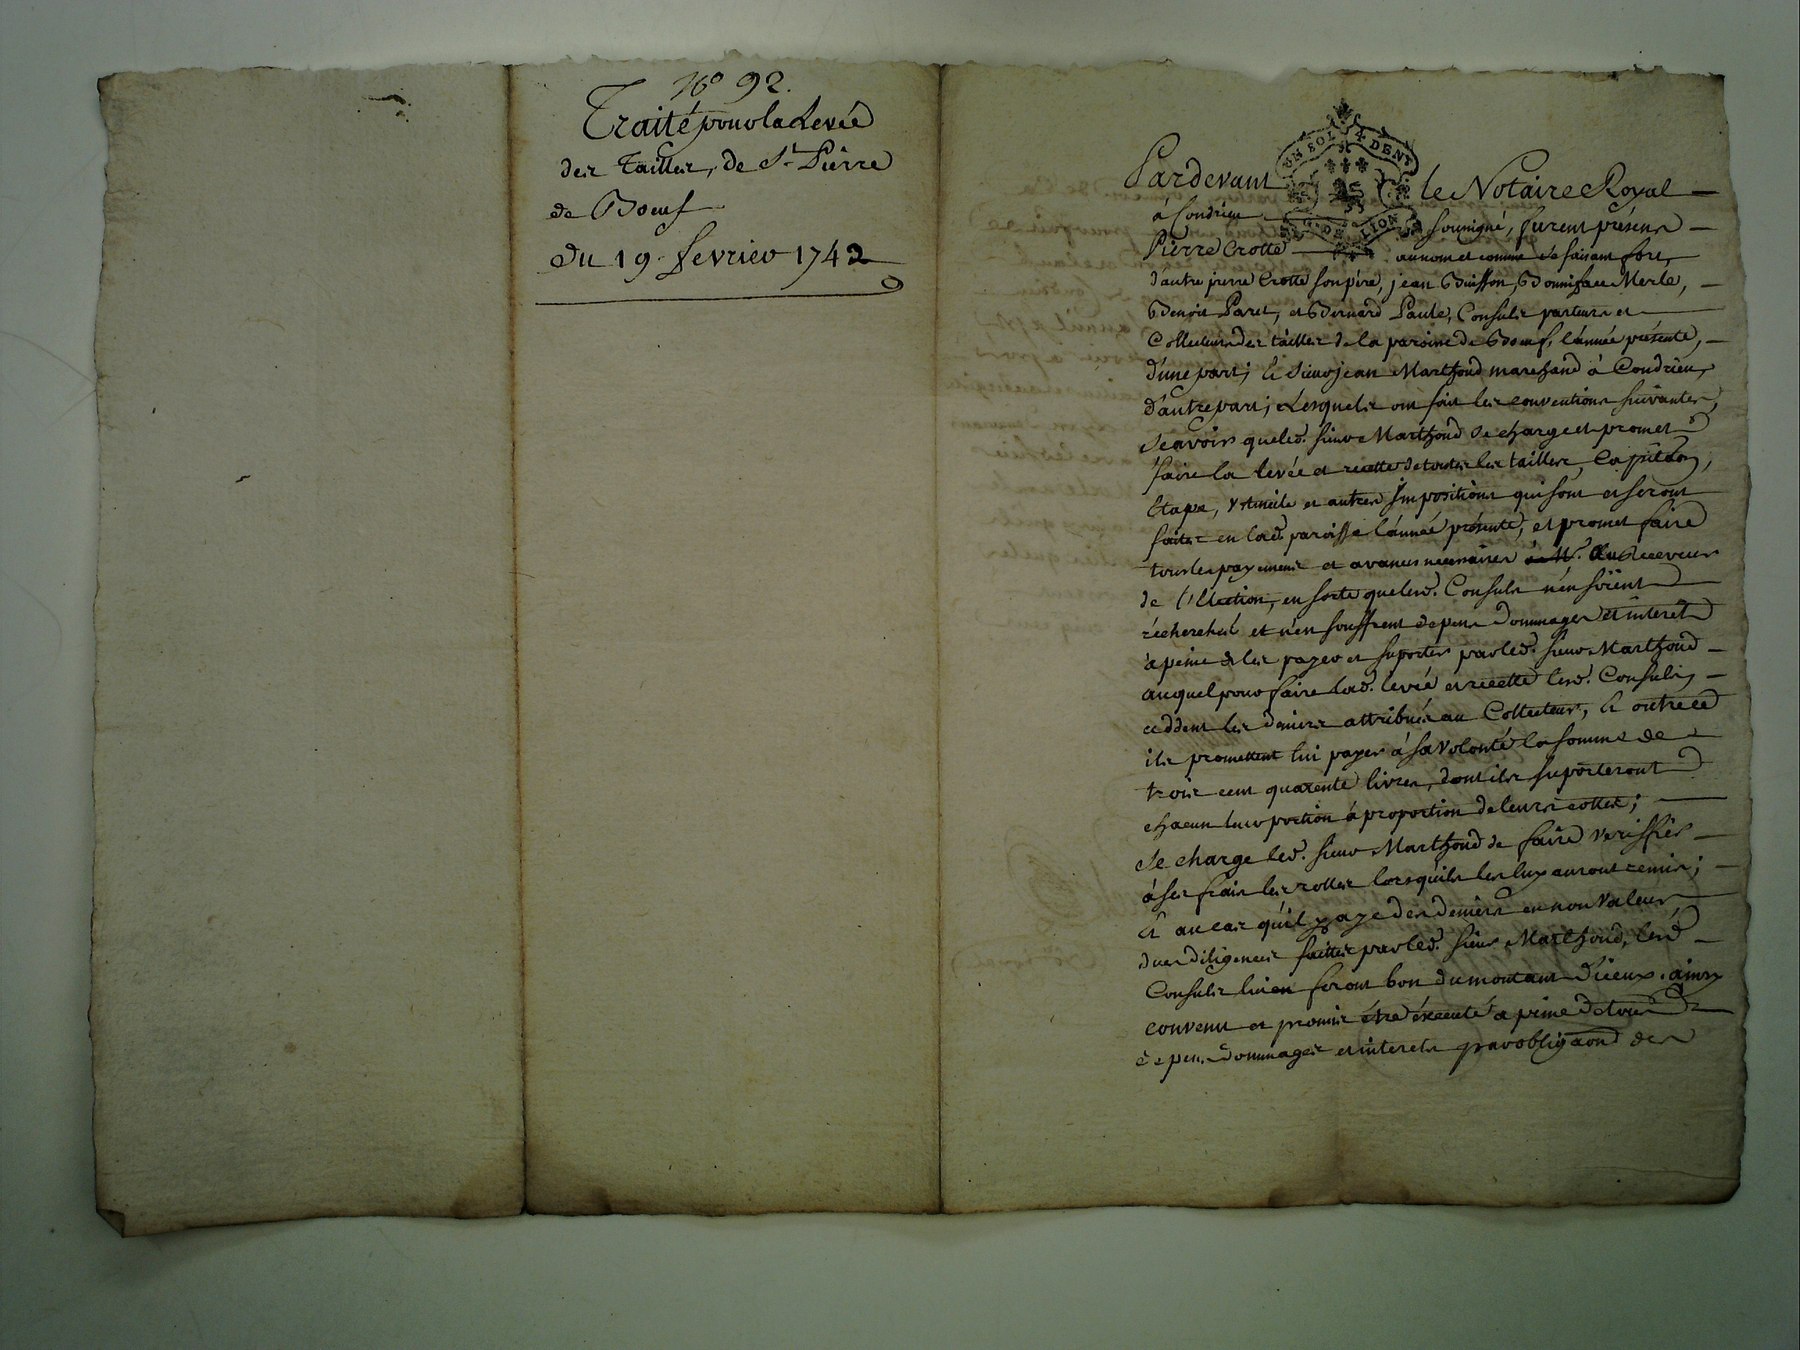 N.º 92.
Traité pour la Levée
des Tailles, de S.t Pierre
de Boeuf
du 19 fevrier 1742
UN SOL 4 DEN.rs
G. DE LION
Pardevant le Notaire Royal
à Condrieu soussigné, furent présens
Pierre Crotte au nom et comme se faisant fort
d'autre pierre Crotte son pére, jean Buisson, Bonniface Merle,
Benoit Paret, et Bernard Paule, Consuls parteurs et
Collecteurs des tailles de la paroisse de Boeuf, l'année présente,
d'une part; & sieur jean Marthoud marchand à Condrieu,
d'autre part; Lesquels ont fait les conventions suivantes,
sçavoir que led. sieur Marthoud se charge et promet
faire la levée et recette de toutes les tailles, Capitaõn,
Etape, Ustancile et autres Impositions qui sont et seront
faites en lad. paroisse l'année présente, et promet faire
tous les payements et avances necessaires au Receveur
de l'Election, en sorte que lesd. Consuls n'en soient
recherchés et n'en souffrent depens dommages et interets
à peine de les payer et suporter par led. sieur Marthoud
auquel pour faire lad. levée et recette lesd. Consuls
ceddent les deniers attribués au Collecteur, & outre ce
ils promettent lui payer à sa volonté la somme de
trois cent quarente livres, dont ils suporteront
chacun leur portion à proportion de leurs cottes;
Se charge led. sieur Marthoud de faire veriffier
à ses frais les rolles lorsqu'ils les luy auront remis;
& au cas qu'il paye des deniers en non valeurs
dues diligences faittes par led. sieur Marthoud, lesd.
Consuls lui en feront bon du montant d'iceux. ainsy
convenu et promis être éxecuté a peine de tous
depens dommages et interets par obligaõnd des